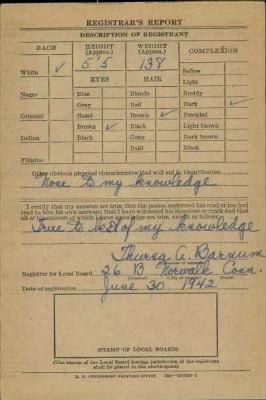 REGISTRAR'S REPORT
DESCRIPTION OF REGISTRANT
RACE HEIGHT (Approx.) WEIGHT (Approx.) COMPLEXION
5'5 138
White ✓ EYES HAIR Sallow
Light
Negro Blue Blonde Ruddy
Gray Red Dark ✓
Oriental Hazel Brown ✓ Freckled
Brown ✓ Black Light brown
Indian Black Gray Dark brown
Bald Black
Filipino
Other obvious physical characteristics that will aid in identification
None to my knowledge
I certify that my answers are true; that the person registered has read or has had
read to him his own answers; that I have witnessed his signature or mark and that
all of his answers of which I have knowledge are true, except as follows:
True to best of my knowledge
A. Barnum
Registrar for Local Board 26 B Norwalk Conn.
Date of registration June 30 1942
(STAMP OF LOCAL BOARD)
(The stamp of the Local Board having jurisdiction of the registrant
shall be placed in the above space)
U. S. GOVERNMENT PRINTING OFFICE